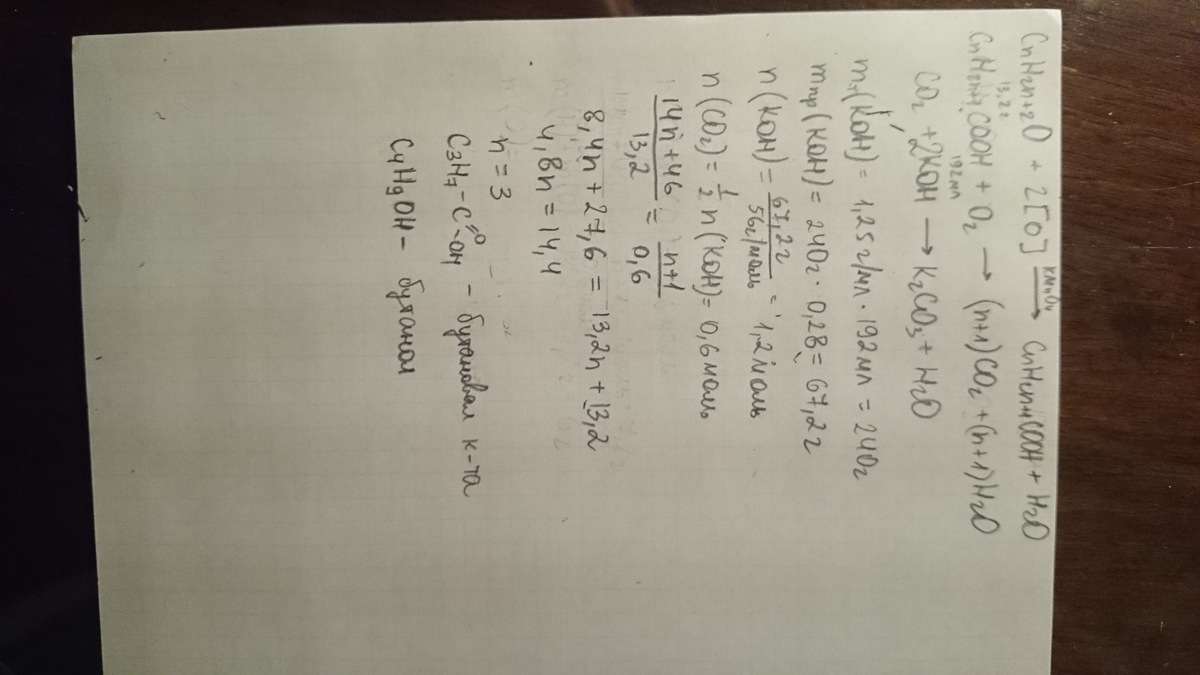 CnH2n+2O + 2[O] KMnO4 → CnH2n+1COOH + H2O
13,2г
CnH2n+1COOH + O2 → (n+1)CO2 + (n+1)H2O
192мл
CO2 + 2KOH → K2CO3 + H2O
m1(KOH) = 1,25г/мл · 192мл = 240г
mпр(KOH) = 240г · 0,28 = 67,2г
n(KOH) = 67,2г / 56г/моль = 1,2моль
n(CO2) = 1/2 n(KOH) = 0,6моль
14n+46 / 13,2 = n+1 / 0,6
8,4n + 27,6 = 13,2n + 13,2
4,8n = 14,4
n = 3
C3H7-C=O-OH - бутановая к-та
C4H9OH - бутанол